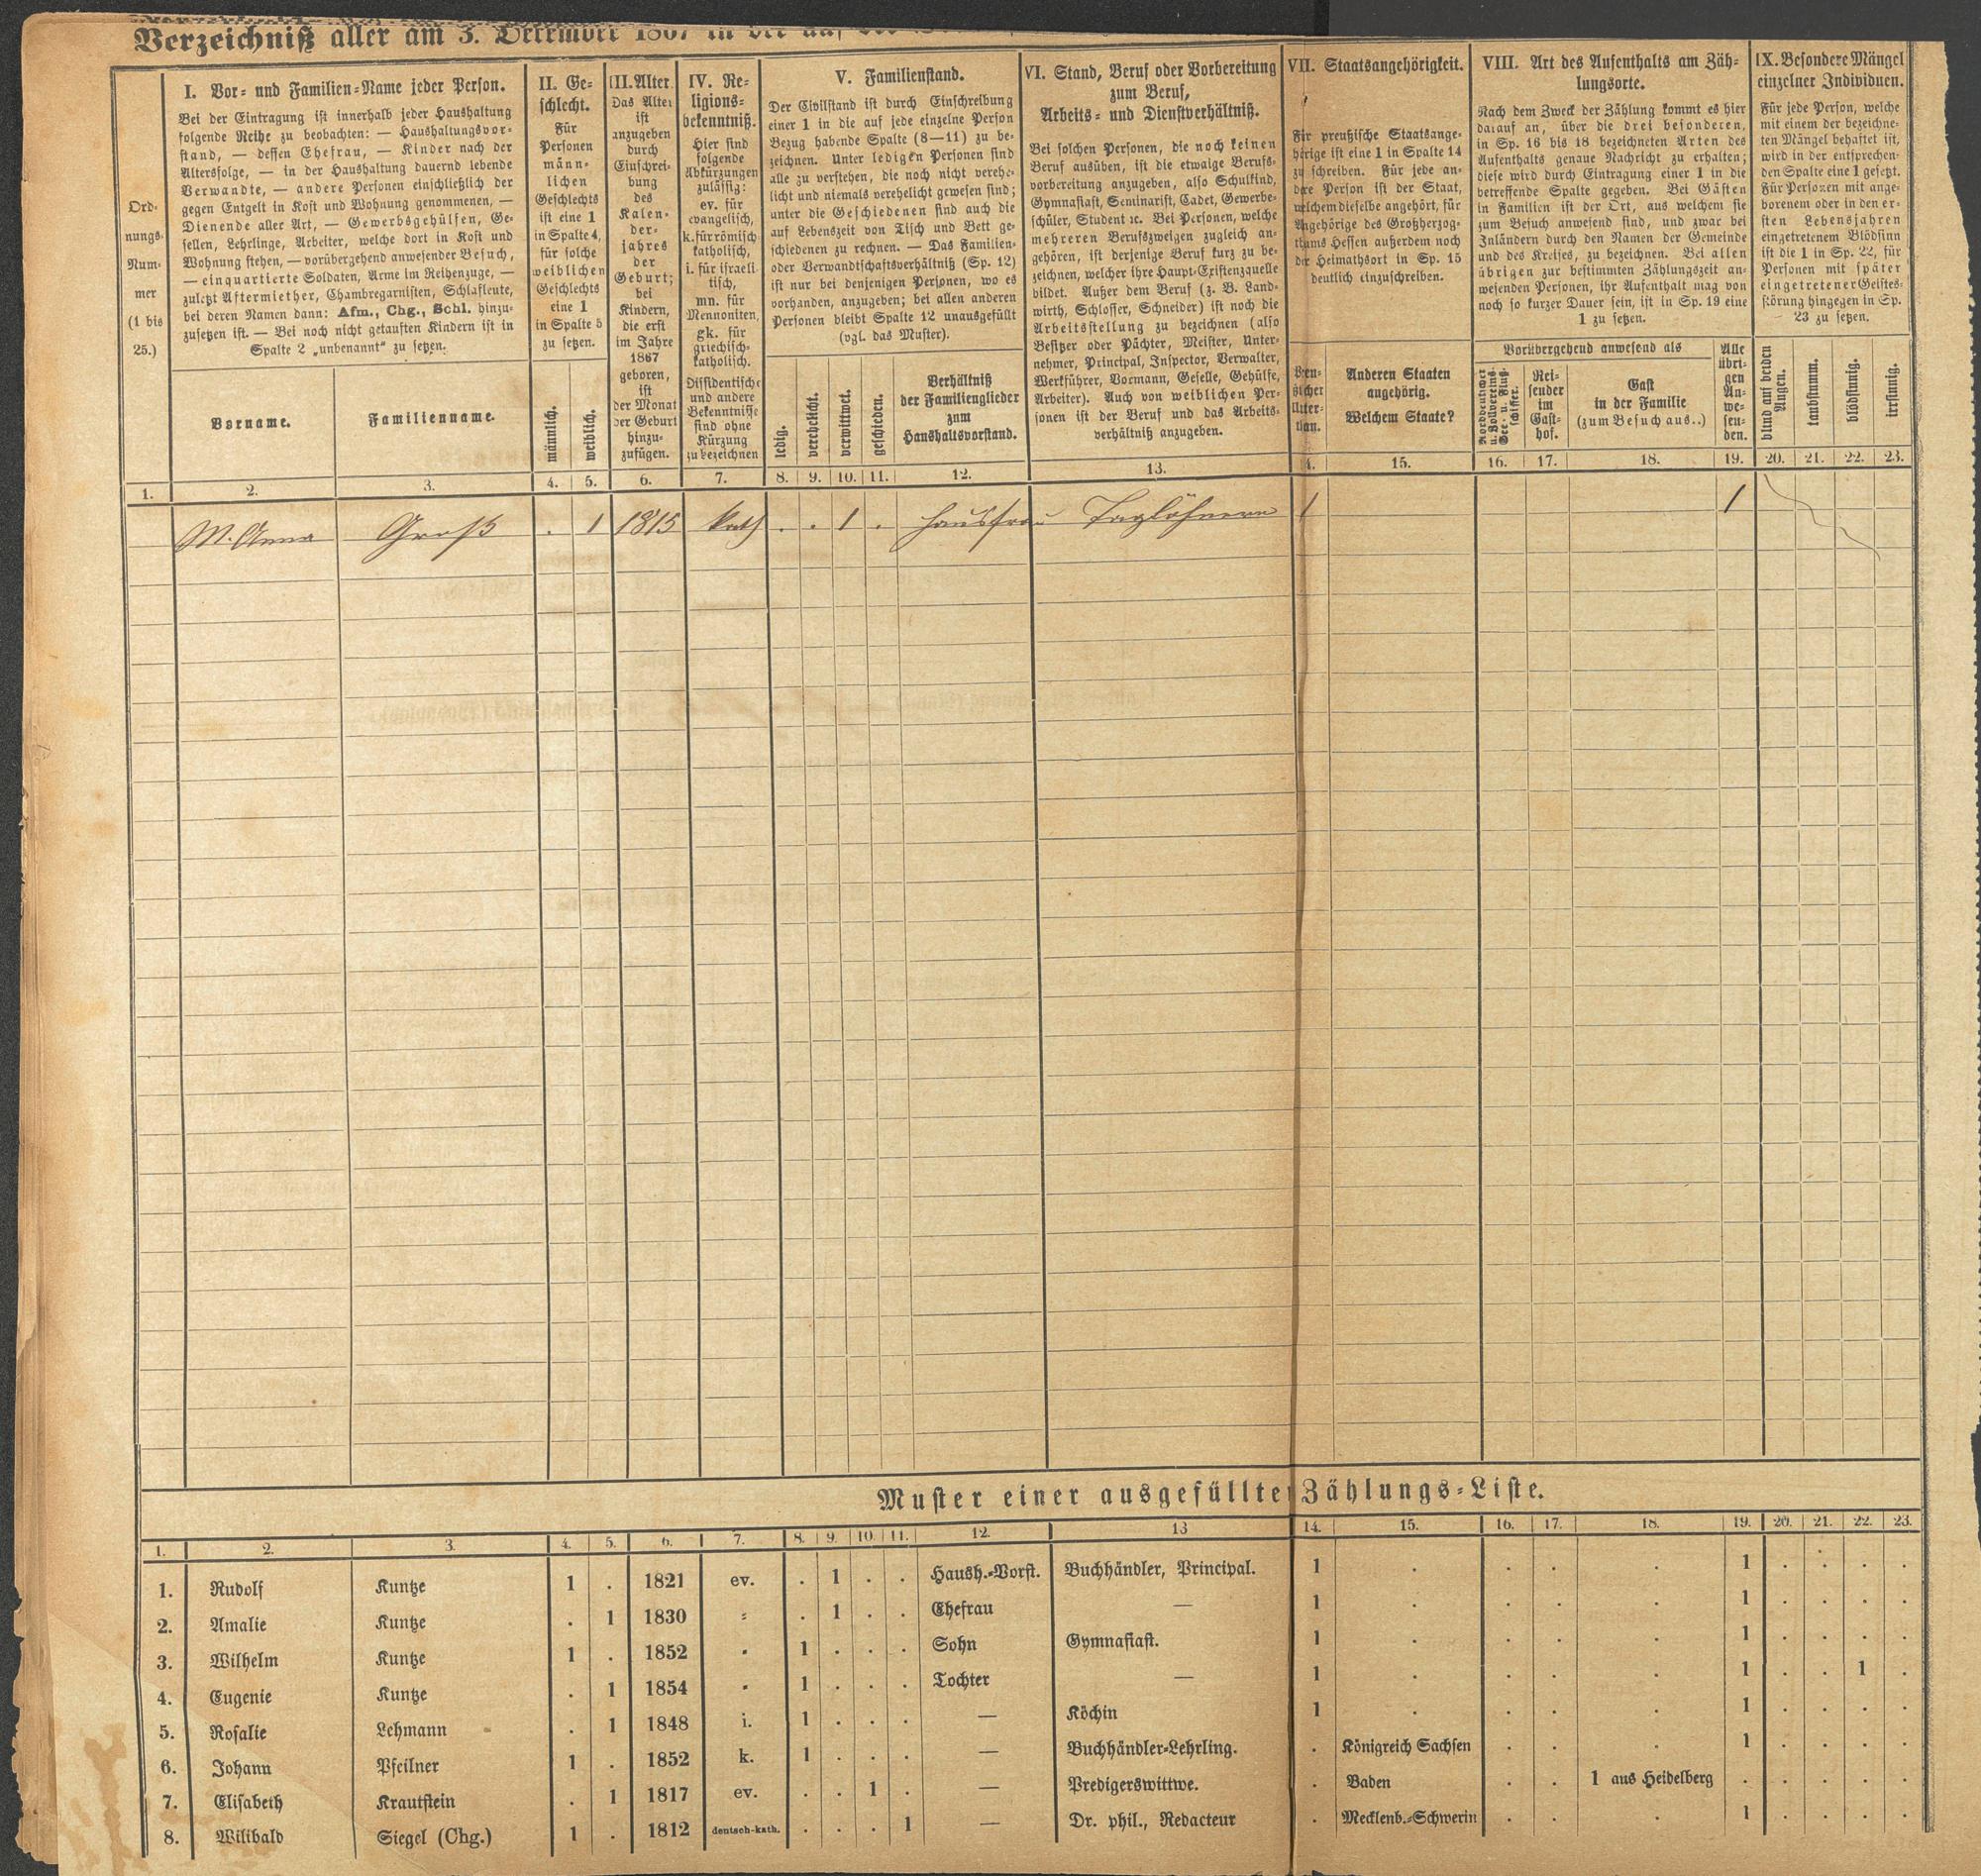 Verzeichniß aller am 3. Dezember 1867 in der auf der
Ord-
nungs-
Num-
mer
(1 bis
25.)
I. Vor- und Familien-Name jeder Person.
Bei der Eintragung ist innerhalb jeder Haushaltung
folgende Reihe zu beobachten: — Haushaltungsvor-
stand, — dessen Ehefrau, — Kinder nach der
Altersfolge, — in der Haushaltung dauernd lebende
Verwandte, — andere Personen einschließlich der
gegen Entgelt in Kost und Wohnung genommenen, —
Dienende aller Art, — Gewerbsgehülfen, Ge-
sellen, Lehrlinge, Arbeiter, welche dort in Kost und
Wohnung stehen, — vorübergehend anwesender Besuch,
— einquartierte Soldaten, Arme im Reihenzuge, —
zuletzt Aftermiether, Chambregarnisten, Schlafleute,
bei deren Namen dann: Afm., Chg., Schl. hinzu-
zusetzen ist. — Bei noch nicht getauften Kindern ist in
Spalte 2 „unbenannt“ zu setzen.
Vorname.
Familienname.
II. Ge-
schlecht.
Für
Personen
männ-
lichen
Geschlechts
ist eine 1
in Spalte 4,
für solche
weiblichen
Geschlechts
eine 1
in Spalte 5
zu setzen.
männlich.
weiblich.
III. Alter.
Das Alter
ist
anzugeben
durch
Einschrei-
bung
des
Kalen-
der-
jahres
der
Geburt;
bei
Kindern,
die erst
im Jahre
1867
geboren,
ist
der Monat
der Geburt
hinzu-
zufügen.
IV. Re-
ligions-
bekenntniß.
Hier sind
folgende
Abkürzungen
zulässig:
ev. für
evangelisch,
k. für römisch-
katholisch,
i. für israeli-
tisch,
mn. für
Mennoniten,
gk. für
griechisch-
katholisch.
Dissidentische
und andere
Bekenntnisse
sind ohne
Kürzung
zu bezeichnen
V. Familienstand.
Der Civilstand ist durch Einschreibung
einer 1 in die auf jede einzelne Person
Bezug habende Spalte (8—11) zu be-
zeichnen. Unter ledigen Personen sind
alle zu verstehen, die noch nicht verehe-
licht und niemals verehelicht gewesen sind;
unter die Geschiedenen sind auch die
auf Lebenszeit von Tisch und Bett ge-
schiedenen zu rechnen. — Das Familien-
oder Verwandtschaftsverhältniß (Sp. 12)
ist nur bei denjenigen Personen, wo es
vorhanden, anzugeben; bei allen anderen
Personen bleibt Spalte 12 unausgefüllt
(vgl. das Muster).
ledig.
verehelicht.
verwittwet.
geschieden.
Verhältniß
der Familienglieder
zum
Haushaltsvorstand.
VI. Stand, Beruf oder Vorbereitung
zum Beruf,
Arbeits- und Dienstverhältniß.
Bei solchen Personen, die noch keinen
Beruf ausüben, ist die etwaige Berufs-
vorbereitung anzugeben, also Schulkind,
Gymnasiast, Seminarist, Cadet, Gewerbe-
schüler, Student ꝛc. Bei Personen, welche
mehreren Berufszweigen zugleich an-
gehören, ist derjenige Beruf kurz zu be-
zeichnen, welcher ihre Haupt-Existenzquelle
bildet. Außer dem Beruf (z. B. Land-
wirth, Schlosser, Schneider) ist noch die
Arbeitsstellung zu bezeichnen (also
Besitzer oder Pächter, Meister, Unter-
nehmer, Principal, Inspector, Verwalter,
Werkführer, Vormann, Geselle, Gehülfe,
Arbeiter). Auch von weiblichen Per-
sonen ist der Beruf und das Arbeits-
verhältniß anzugeben.
VII. Staatsangehörigkeit.
Für preußische Staatsange-
hörige ist eine 1 in Spalte 14
zu schreiben. Für jede an-
dere Person ist der Staat,
welchem dieselbe angehört, für
Angehörige des Großherzog-
thums Hessen außerdem noch
der Heimathsort in Sp. 15
deutlich einzuschreiben.
Preu-
ßischer
Unter-
than.
Anderen Staaten
angehörig.
Welchem Staate?
VIII. Art des Aufenthalts am Zäh-
lungsorte.
Nach dem Zweck der Zählung kommt es hier
darauf an, über die drei besonderen,
in Sp. 16 bis 18 bezeichneten Arten des
Aufenthalts genaue Nachricht zu erhalten;
diese wird durch Eintragung einer 1 in die
betreffende Spalte gegeben. Bei Gästen
in Familien ist der Ort, aus welchem sie
zum Besuch anwesend sind, und zwar bei
Inländern durch den Namen der Gemeinde
und des Kreises, zu bezeichnen. Bei allen
übrigen zur bestimmten Zählungszeit an-
wesenden Personen, ihr Aufenthalt mag von
noch so kurzer Dauer sein, ist in Sp. 19 eine
1 zu setzen.
Vorübergehend anwesend als
Norddeutscher
u. Zollvereins-
See- u. Fluß-
schiffer.
Rei-
sender
im
Gast-
hof.
Gast
in der Familie
(zum Besuch aus..)
Alle
übri-
gen
An-
we-
sen-
den.
IX. Besondere Mängel
einzelner Individuen.
Für jede Person, welche
mit einem der bezeichne-
ten Mängel behaftet ist,
wird in der entsprechen-
den Spalte eine 1 gesetzt.
Für Personen mit ange-
borenem oder in den er-
sten Lebensjahren
eingetretenem Blödsinn
ist die 1 in Sp. 22, für
Personen mit später
eingetretener Geistes-
störung hingegen in Sp.
23 zu setzen.
blind auf beiden
Augen.
taubstumm.
blödsinnig.
irrsinnig.
1. 2. 3. 4. 5. 6. 7. 8. 9. 10. 11. 12. 13. 14. 15. 16. 17. 18. 19. 20. 21. 22. 23.
M. Anna Groß . 1 1815 kath . . 1 . Hausfrau Taglöhnern 1 1
Muster einer ausgefüllten Zählungs-Liste.
1. 2. 3. 4. 5. 6. 7. 8. 9. 10. 11. 12. 13 14. 15. 16. 17. 18. 19. 20. 21. 22. 23.
1. Rudolf Kuntze 1 . 1821 ev. . 1 . . Haush.-Vorst. Buchhändler, Principal. 1 . . . . 1 . . . .
2. Amalie Kuntze . 1 1830 „ . 1 . . Ehefrau — 1 . . . . 1 . . . .
3. Wilhelm Kuntze 1 . 1852 „ 1 . . . Sohn Gymnasiast. 1 . . . . 1 . . . .
4. Eugenie Kuntze . 1 1854 „ 1 . . . Tochter — 1 . . . . 1 . . 1 .
5. Rosalie Lehmann . 1 1848 i. 1 . . . — Köchin 1 . . . . 1 . . . .
6. Johann Pfeilner 1 . 1852 k. 1 . . . — Buchhändler-Lehrling. . Königreich Sachsen . . . 1 . . . .
7. Elisabeth Krautstein . 1 1817 ev. . . 1 . — Predigerswittwe. . Baden . . 1 aus Heidelberg . . . . .
8. Wilibald Siegel (Chg.) 1 . 1812 deutsch-kath. . . . 1 — Dr. phil., Redacteur . Mecklenb.-Schwerin . . . 1 . . . .